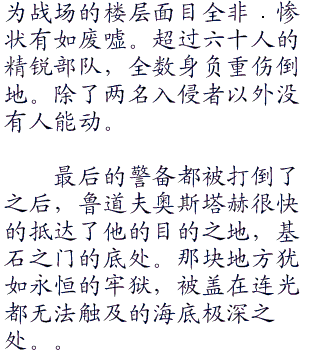 为战场的楼层面目全非．惨
状有如废嘘。超过六十人的
精锐部队，全数身负重伤倒
地。除了两名入侵者以外没
有人能动。
最后的警备都被打倒了
之后，鲁道夫奥斯塔赫很快
的抵达了他的目的之地，基
石之门的底处。那块地方犹
如永恒的牢狱，被盖在连光
都无法触及的海底极深之
处。。